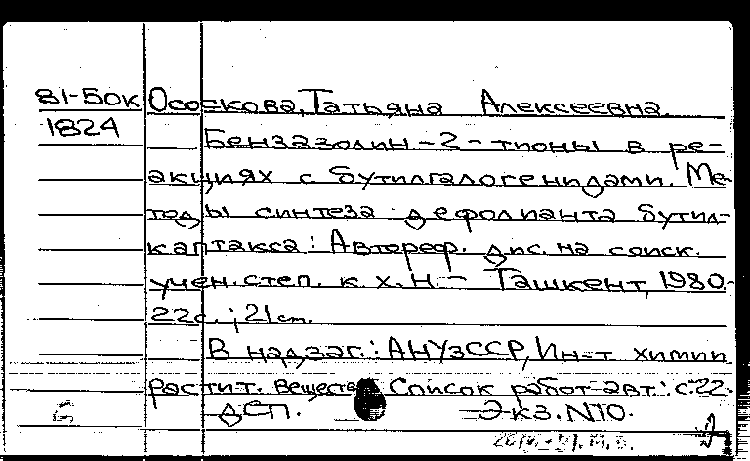 81-50к Осоекова, Татьяна Алексеевна.
1824 Бензазолин-2-тионы в ре-
акциях с бутилгалогенидами. Ме-
тоды синтеза дефолианта бутил-
каптакса: Автореф. дис. на соиск.
учен. степ. к. х. н. - Ташкент, 1980.-
22с.; 21см.
В надзаг.: АН УзССР, Ин-т химии
растит. веществ. Список работ авт.: с. 22.
ДСП. Экз. N10.